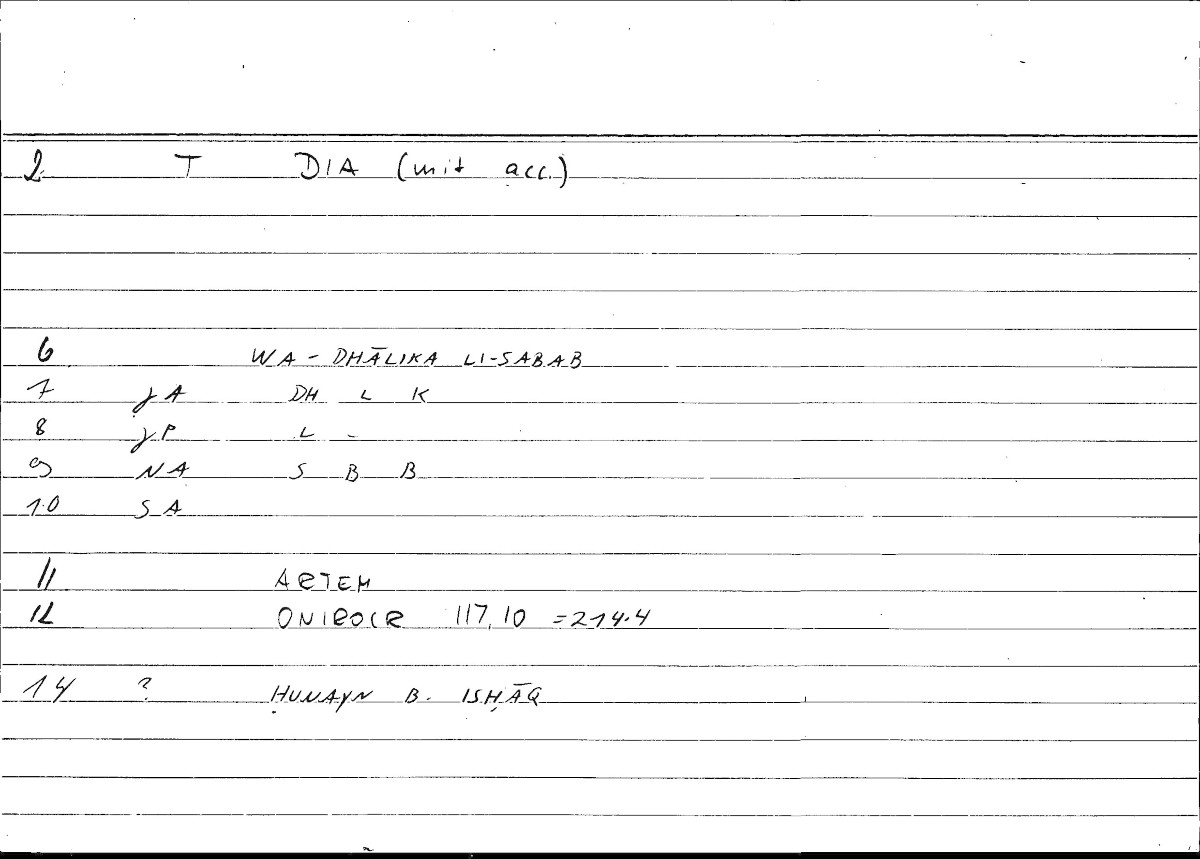 2. T DIA (mit acc.)
6 WA-DHĀLIKA LI-SABAB
7 JA DH L K
8 JP L -
9 NA S B B
10 SA
11 ARTEM
12 ONIROCR 117,10 =214.4
14 ? ḤUNAYN B. ISḤĀQ